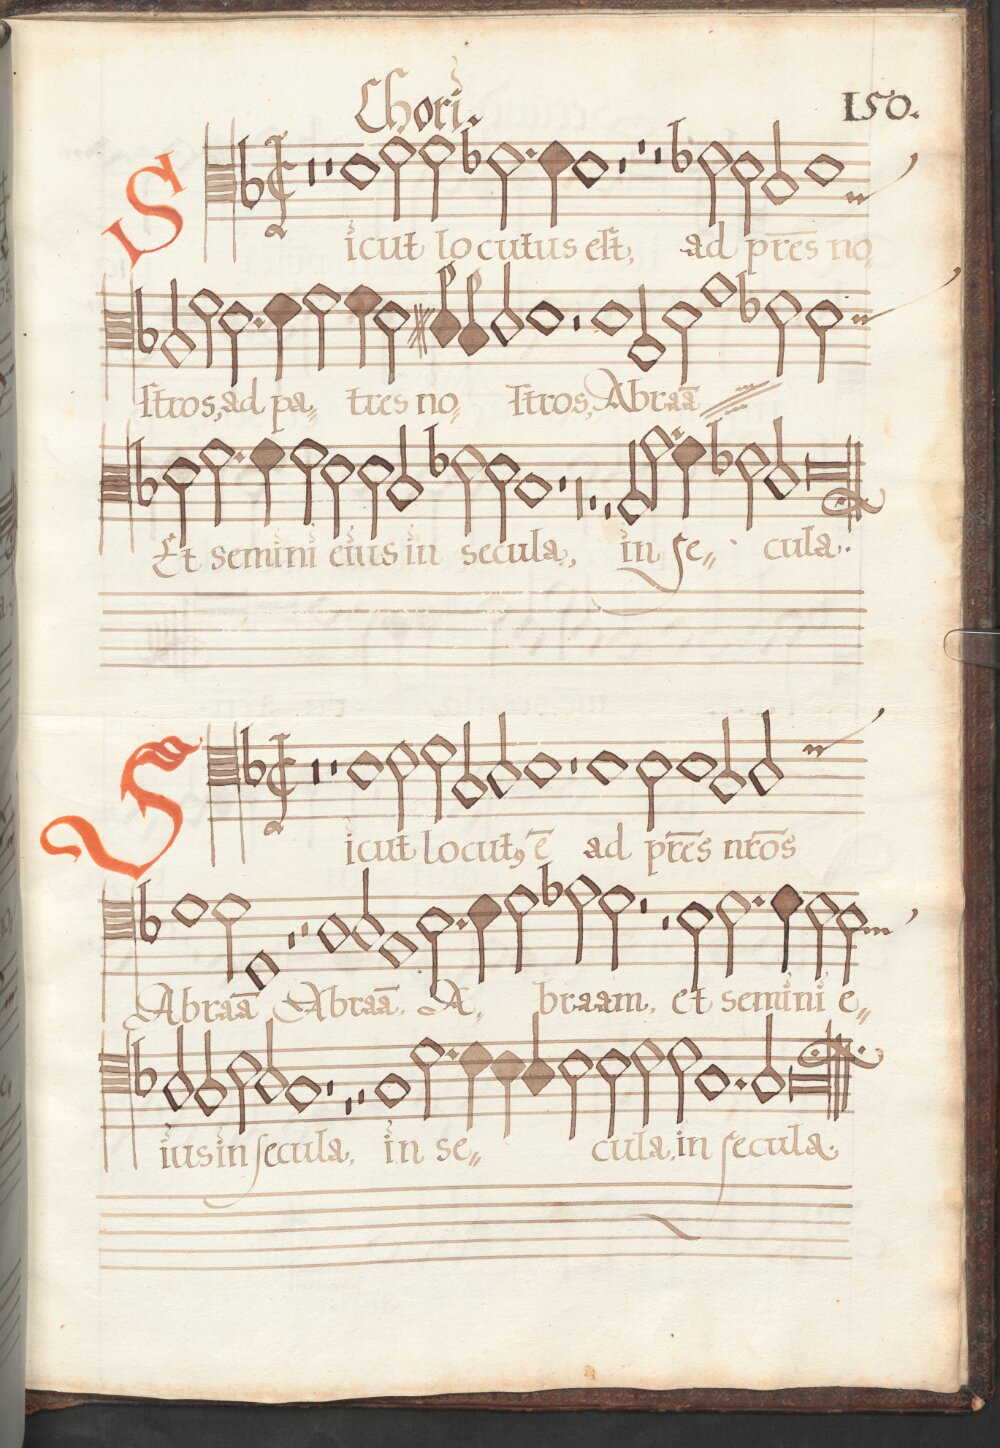 Chori.
150.
Sicut locutus est, ad prēs no,,
stros, ad pa,, tres no,, stros, Abraā
Et semini eius in secula, in se,, cula.
Sicut locutꝰ ē ad prēs nrōs
Abraā Abraā. A,, braam, et semini e,,
ius in secula, in se,, cula, in secula.